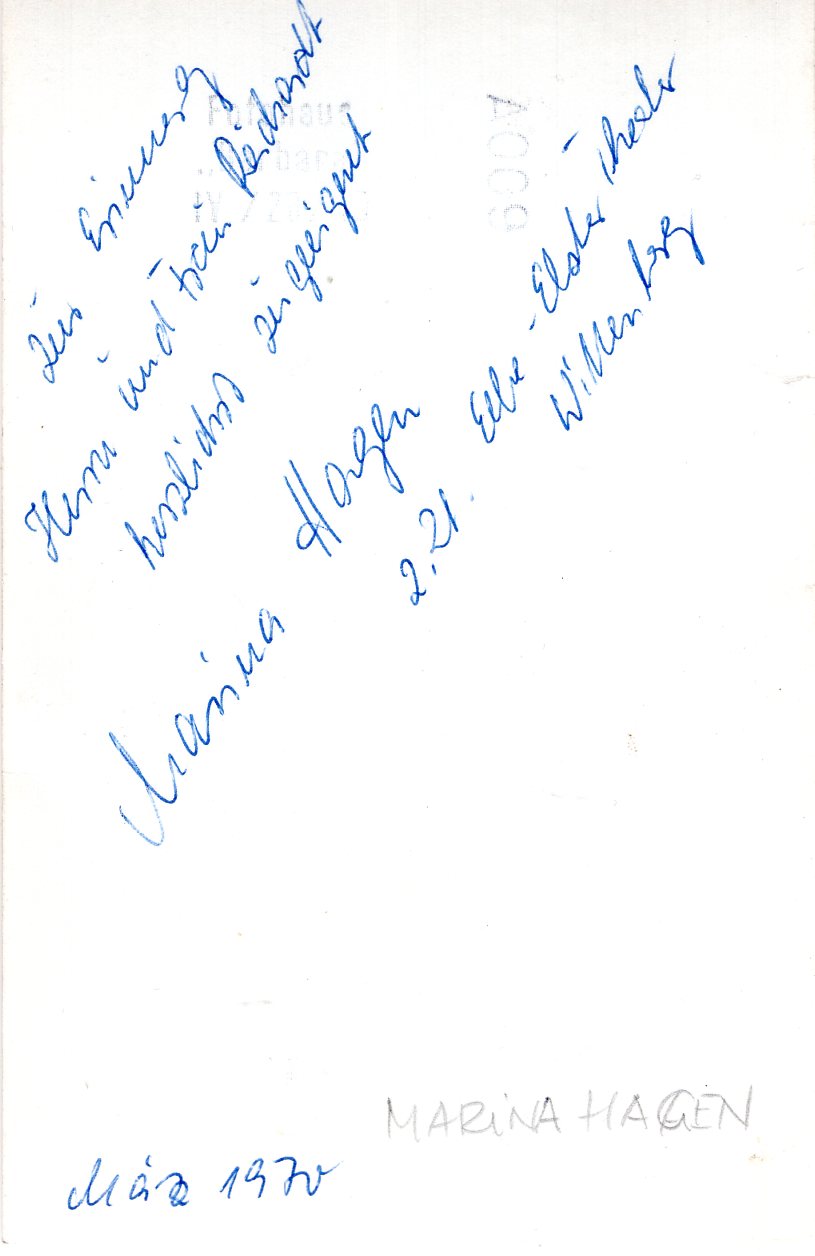 Zur Erinnerung
Herrn und Frau Reichardt
herzlichst zugeeignet
Marina Hagen
z. Zt. Elbe-Elster-Theater
Wittenberg
A009
Fotohaus
MARINA HAGEN
März 1970